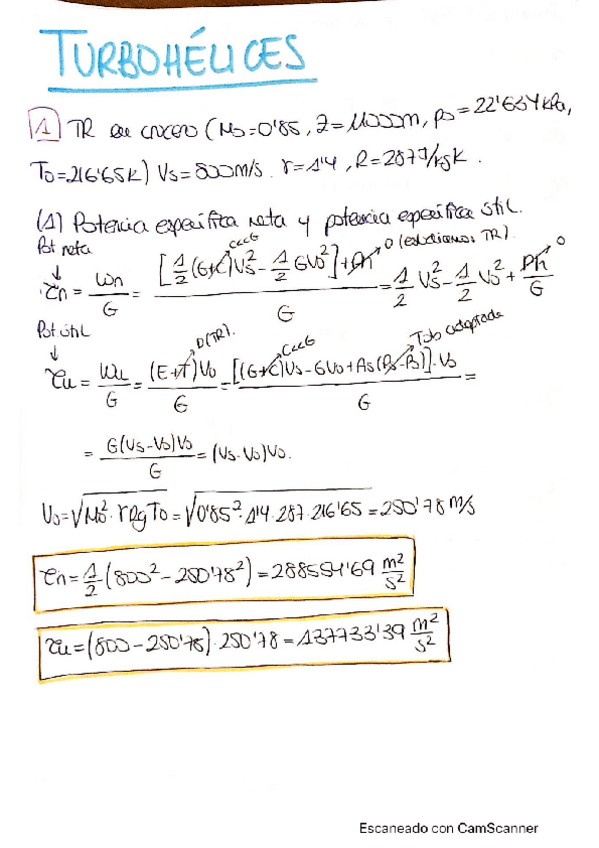 TURBOHÉLICES
1 TR en crucero (M0=0'85, z=11000m, p0=22'634kPa,
T0=216'65K) Vs=800m/s. γ=1'4, R=287J/kgK.
(1) Potencia específica neta y potencia específica útil.
Pot neta
c<<G
0 (estudiamos TR).
0
τn = Wn/G = [1/2(G+c)Vs² - 1/2GV0²]+Ph / G = 1/2 Vs² - 1/2 V0² + Ph/G
Pot útil
0(TR).
c<<G
Tob adaptada
τu = Wu/G = (E+T)V0/G = [(G+c)Vs-GV0+As(Ps-P0)]·V0 / G =
= G(Vs-V0)V0/G = (Vs-V0)V0.
V0=√M0²·γRgT0 = √0'85²·1'4·287·216'65 = 250'78 m/s
τn = 1/2 (800² - 250'78²) = 288554'69 m²/s²
τu = (800 - 250'78)·250'78 = 137733'39 m²/s²
Escaneado con CamScanner